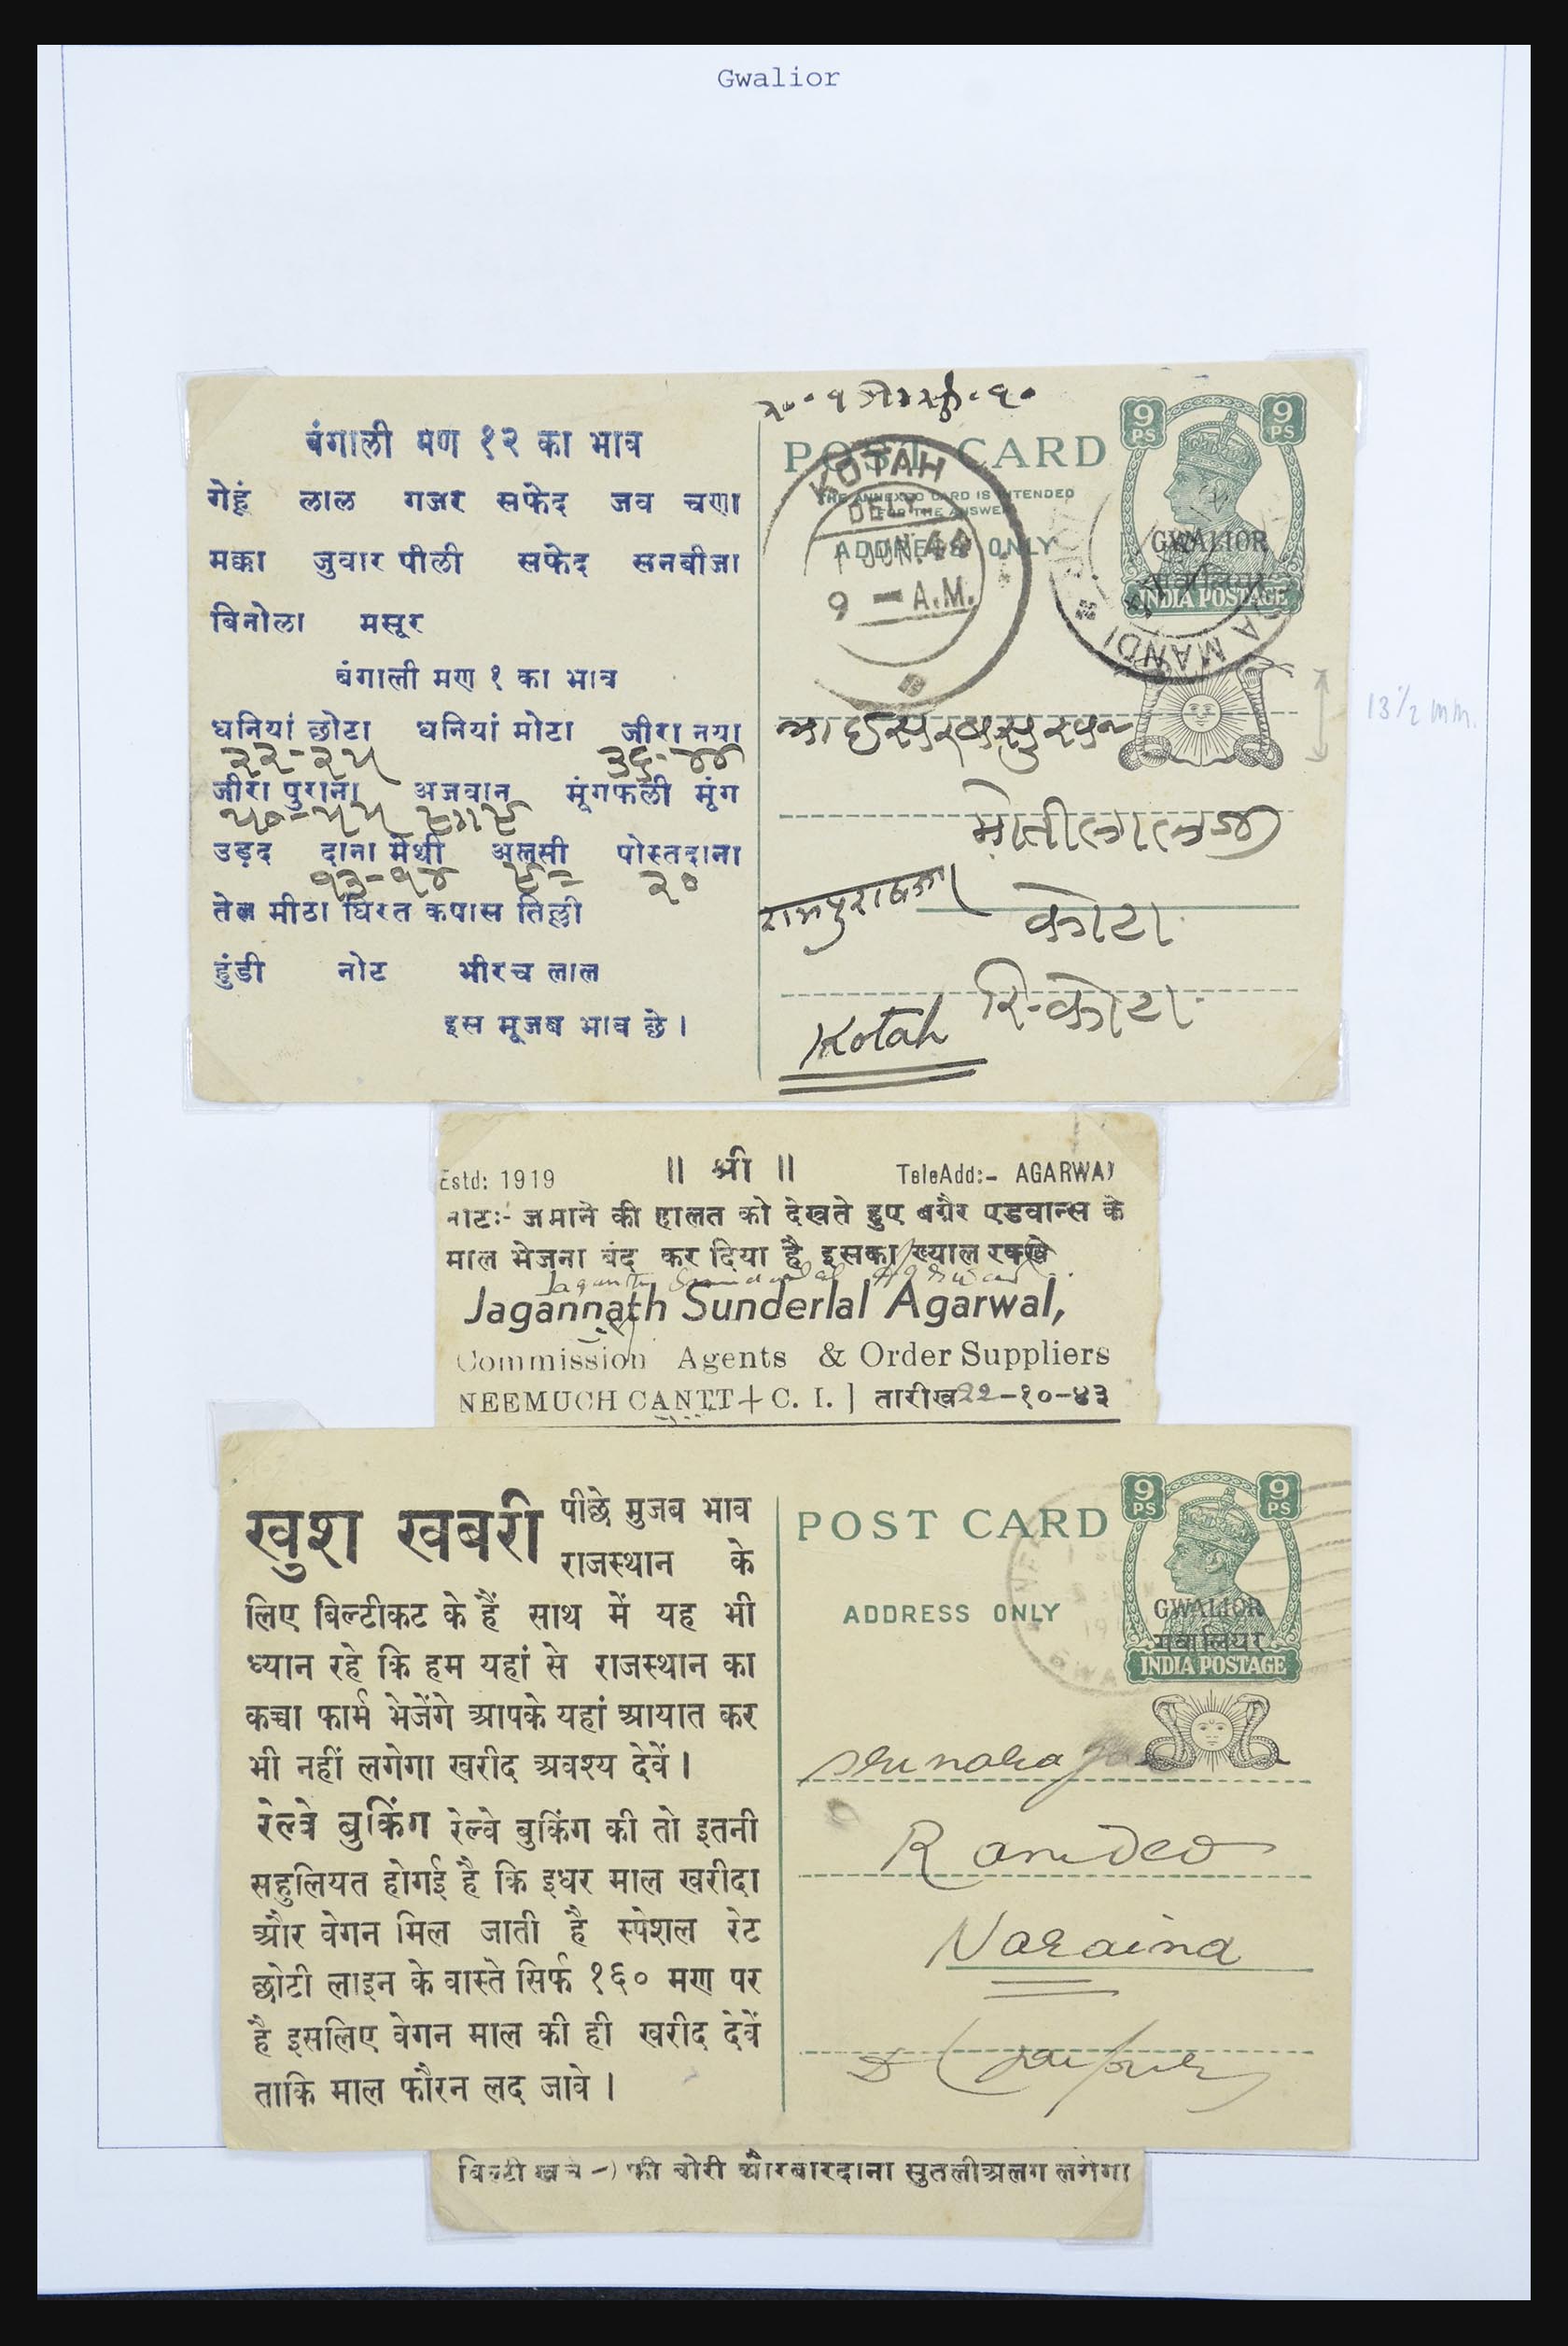 Gwalior
बंगाली मण १२ का भाव
गेहूं लाल गजर सफेद जव चणा
मक्का जुवार पीली सफेद सनबीजा
बिनोला मसूर
बंगाली मण १ का भाव
धनियां छोटा धनियां मोटा जीरा नया
२२-२५ ३६-४४
जीरा पुराना अजवान मूंगफली मूंग
५०-५५
उड़द दाना मेथी अलसी पोस्तदाना
१३-१४ २०
तेल मीठा घिरत कपास तिल्ली
हुंडी नोट मीरच लाल
इस मूजब भाव छे।
POST CARD
THE ANNEXED CARD IS INTENDED
FOR THE ANSWER
ADDRESS ONLY
KOTAH
DEL.
1 JUN.
9 - A.M.
9 PS 9 PS
GWALIOR
गवालियर
INDIA POSTAGE
MANDI
13½ mm.
मोतीलालजी
कोटा
रि-कोटा
Kotah
Estd: 1919 ॥ श्री ॥ TeleAdd:- AGARWAL
नोट:- जमाने की हालत को देखते हुए बग़ैर एडवान्स के
माल भेजना बंद कर दिया है इसका ख्याल रक्खे
Jagannath Sunderlal Agarwal,
Commission Agents & Order Suppliers
NEEMUCH CANTT + C. I. ] तारीख २२-१०-४३
खुश खबरी पीछे मुजब भाव
राजस्थान के
लिए बिल्टीकट के हैं साथ में यह भी
ध्यान रहे कि हम यहां से राजस्थान का
कच्चा फार्म भेजेंगे आपके यहां आयात कर
भी नहीं लगेगा खरीद अवश्य देवें।
रेल्वे बुकिंग रेल्वे बुकिंग की तो इतनी
सहुलियत होगई है कि इधर माल खरीदा
और वेगन मिल जाती है स्पेशल रेट
छोटी लाइन के वास्ते सिर्फ १६० मण पर
है इसलिए वेगन माल की ही खरीद देवें
ताकि माल फौरन लद जावे।
POST CARD
ADDRESS ONLY
9 PS 9 PS
GWALIOR
गवालियर
INDIA POSTAGE
Ramdeo
Naraina
Jaipur
बिल्टी खर्च -) फी बोरी और बारदाना सुतली अलग लगेगा